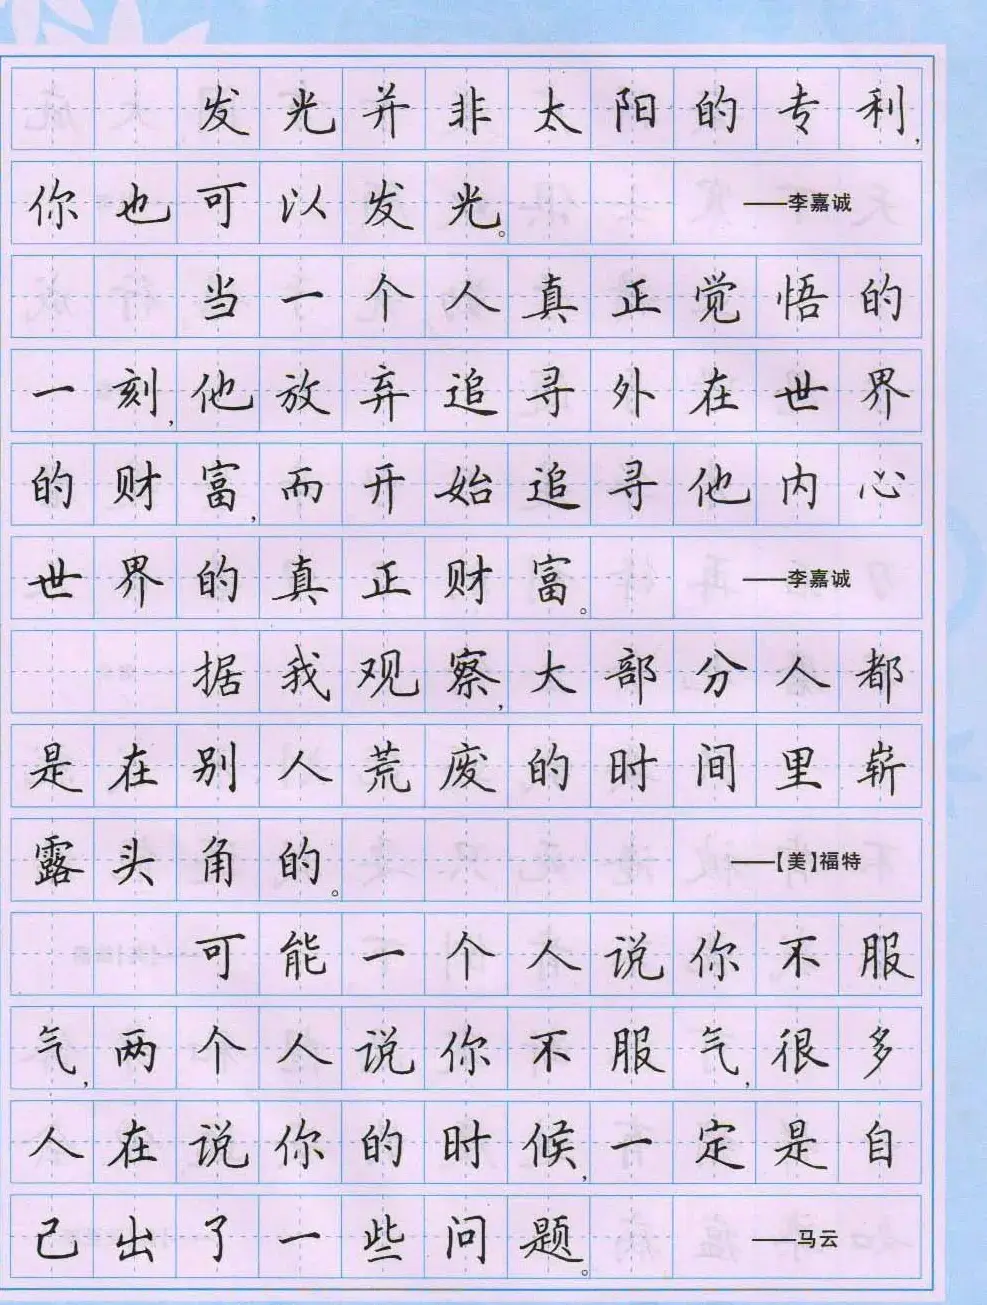 发光并非太阳的专利,
你也可以发光。 ——李嘉诚
当一个人真正觉悟的
一刻,他放弃追寻外在世界
的财富,而开始追寻他内心
世界的真正财富。 ——李嘉诚
据我观察,大部分人都
是在别人荒废的时间里崭
露头角的。 ——【美】福特
可能一个人说你不服
气,两个人说你不服气,很多
人在说你的时候,一定是自
己出了一些问题。 ——马云